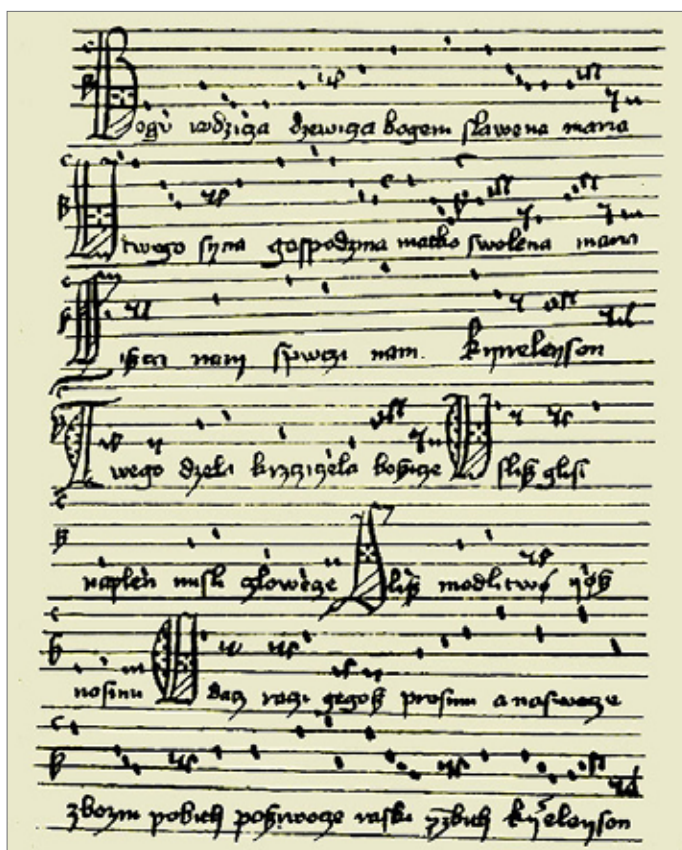 Bogu rodzicza dzewicza bogem slawena maria
U twego syna gospodzina matko swolena maria
nam spwczi nam. kyrieleyson
Twego dzela krzcziczela bozicze Uslisz glosi
naplen misli czlowecze Slisz modlitwo yosz
nosimi dacz raczi gegosz prosimi a naswecze
zbozni pobith raski kyrieleyson